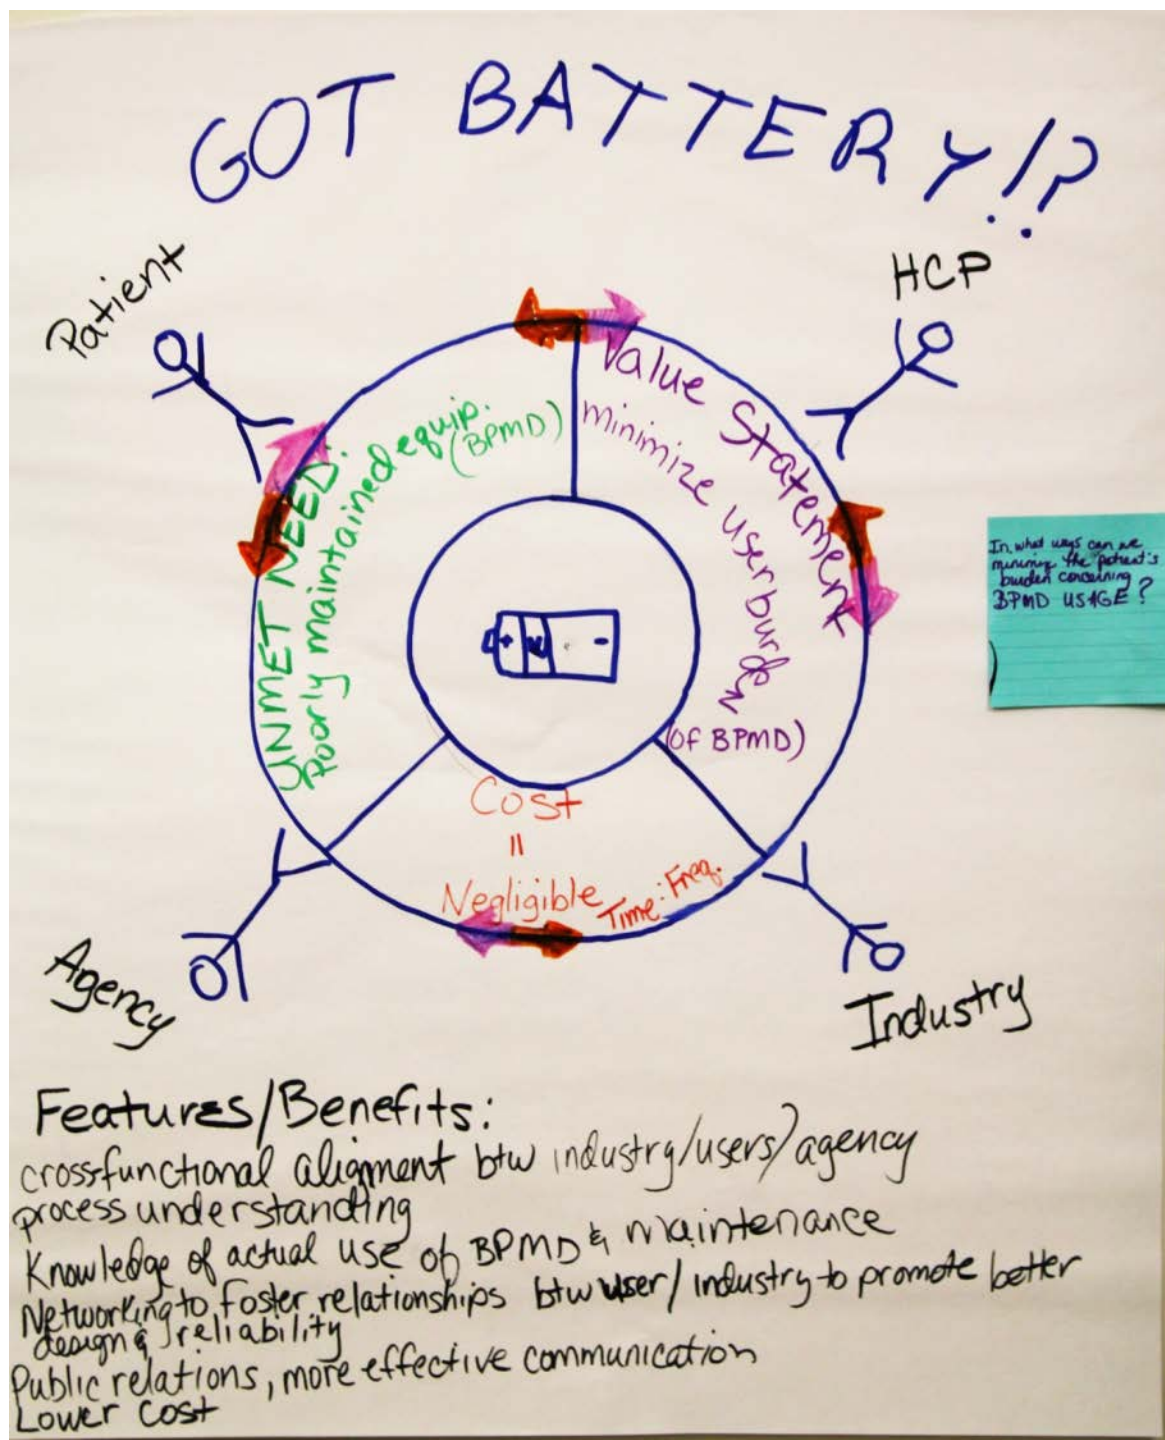 GOT BATTERY!?
Patient
HCP
UNMET NEED:
Poorly maintained equip.
(BPMD)
Value Statement
minimize user burden
(of BPMD)
+
-
In what ways can we
minimize the patient's
burden concerning
BPMD USAGE?
Cost
=
Negligible
Time: Freq.
Agency
Industry
Features/Benefits:
cross-functional alignment btw industry/users/agency
process understanding
Knowledge of actual use of BPMD & maintenance
Networking to foster relationships btw user/industry to promote better
design & reliability
Public relations, more effective communication
Lower Cost